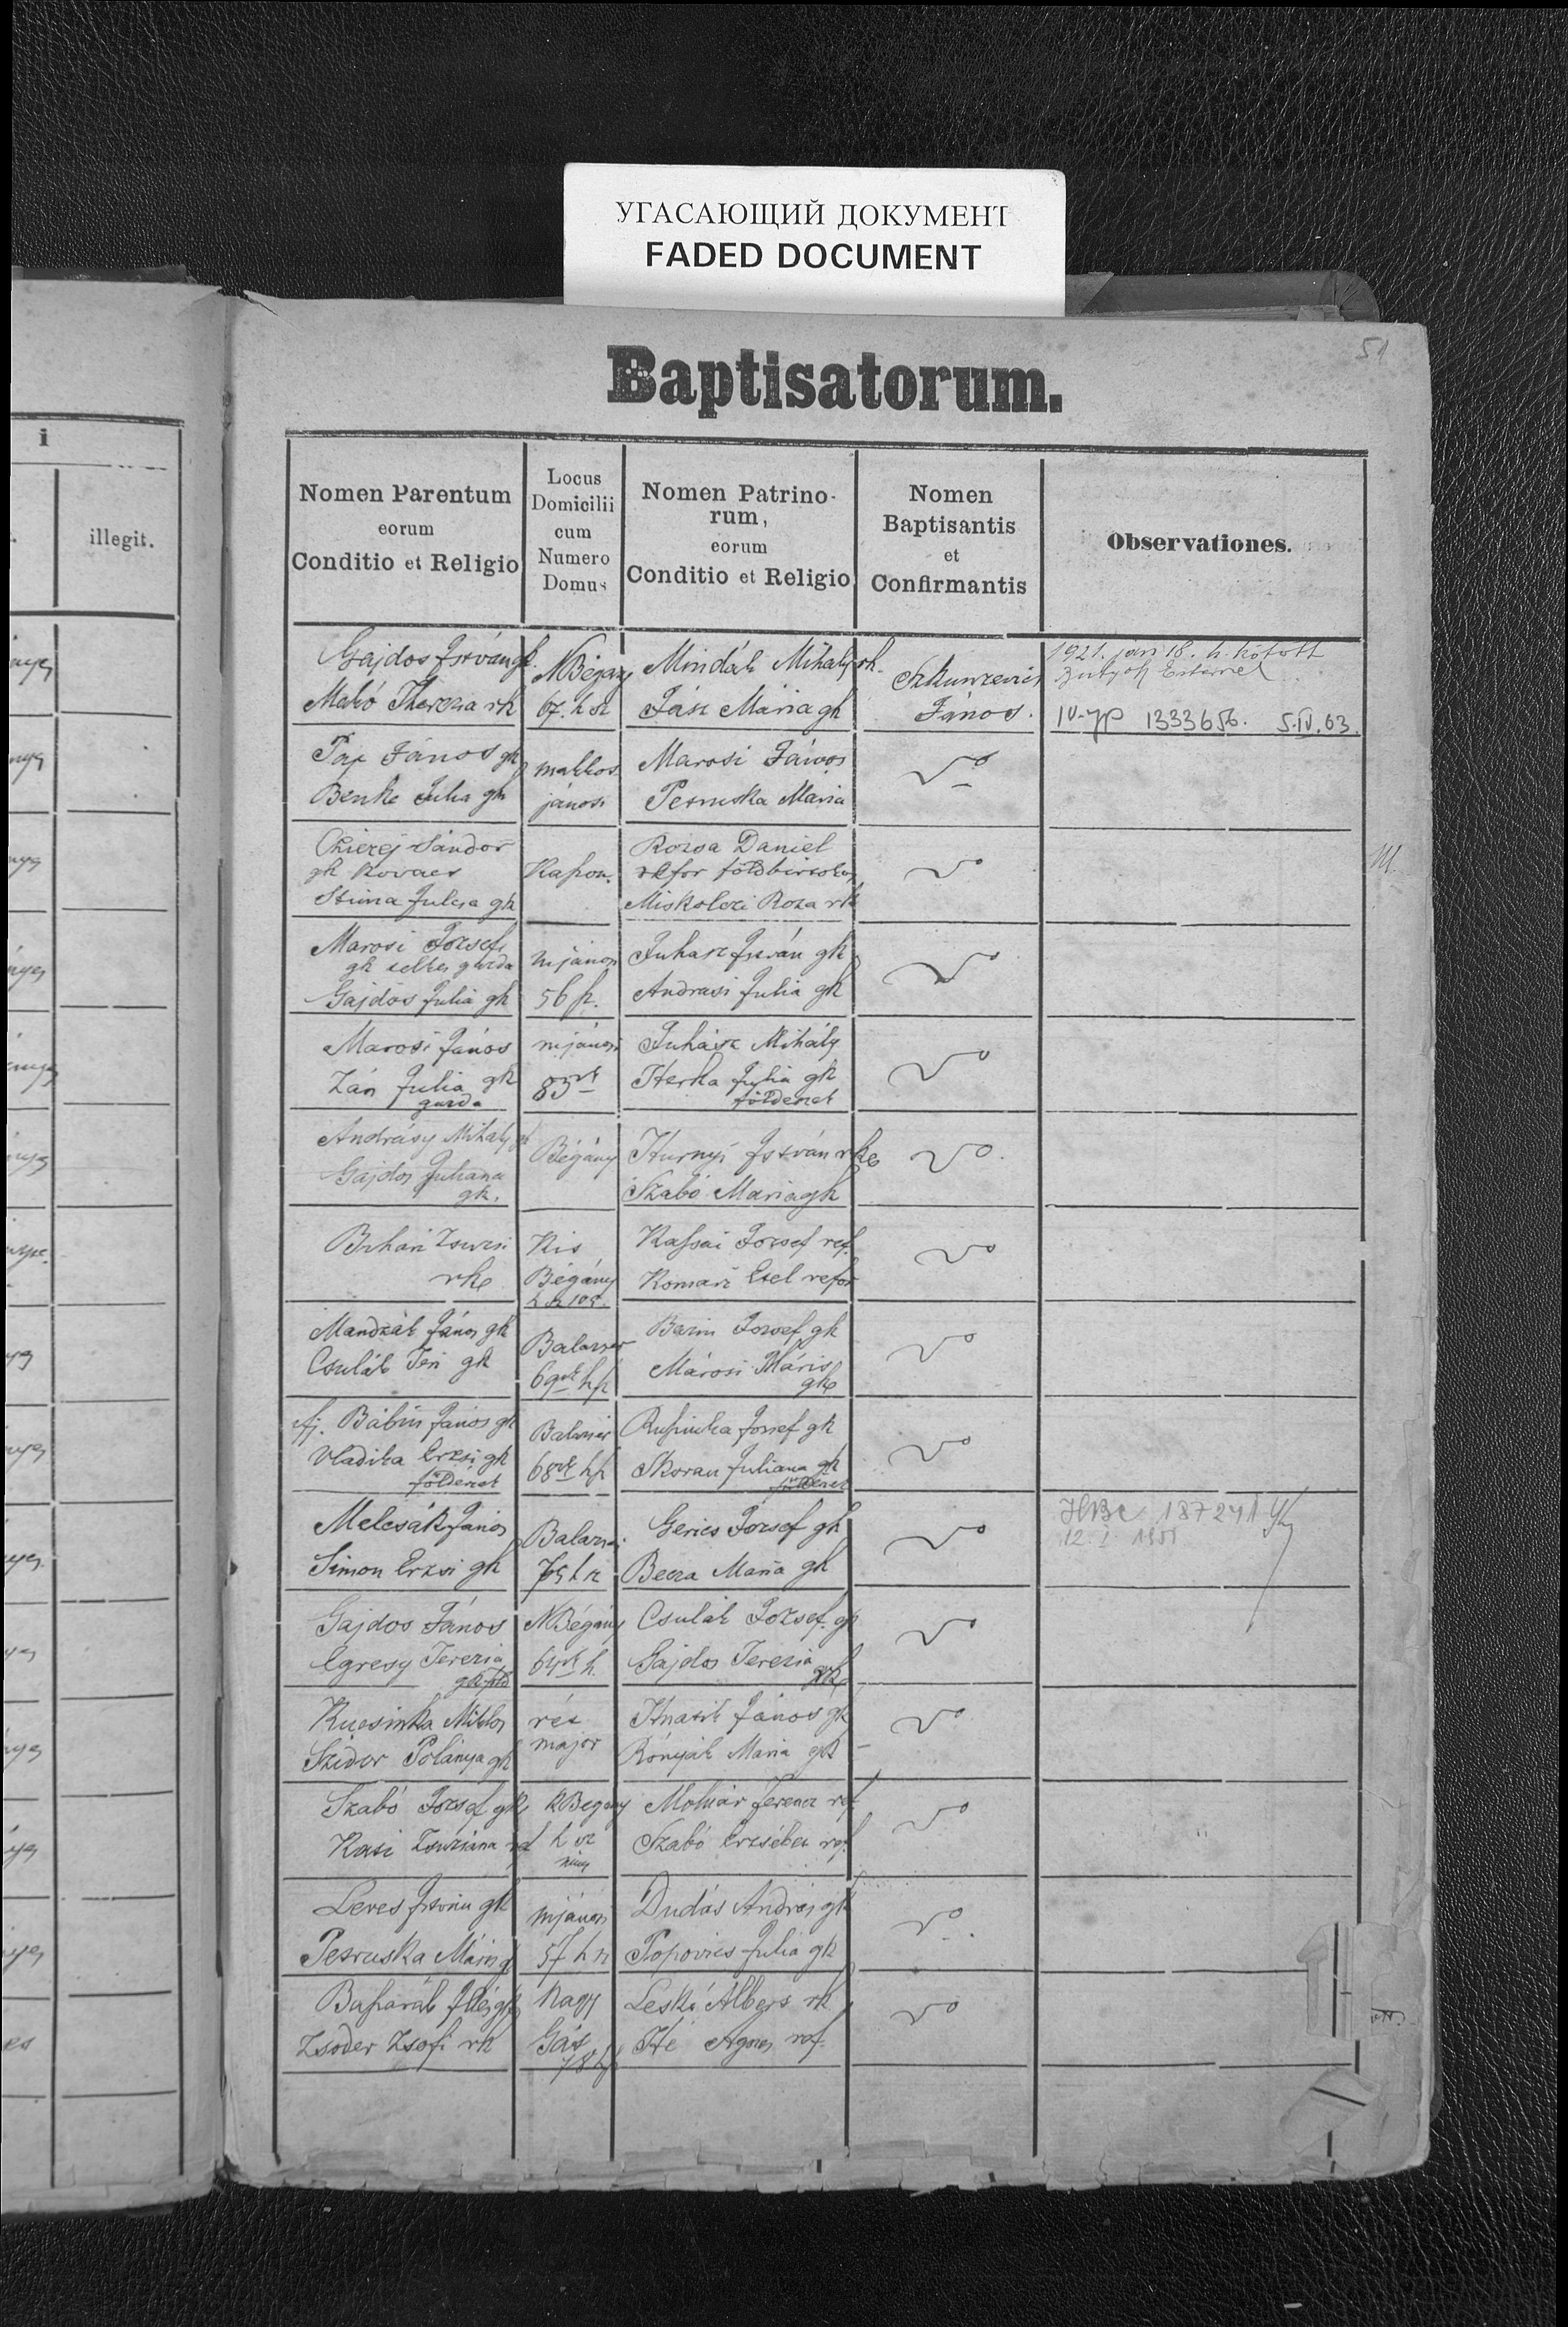 УГАСАЮЩИЙ ДОКУМЕНТ
FADED DOCUMENT
51
Baptisatorum.
i
illegit.
Nomen Parentum
eorum
Conditio et Religio
Locus
Domicilii
cum
Numero
Domus
Nomen Patrino-
rum,
eorum
Conditio et Religio
Nomen
Baptisantis
et
Confirmantis
Observationes.
Gajdos István gk.
Makó Therezia rk
NBégány
67. h sz
Mindák Mihály rk.
Jász Mária gk
János.
1921. jan 18. h. kötött
Eszterrel
IV-УР 1333656. 5.IV.63.
Pap János gk
Benke Julia gk
makkos
jánosi
Marosi János
Petruska Maria
Sándor
gk kovacs
Julcsa gk
Kaszon.
Rozsa Daniel
refor földbirtokos
Miskolczi Roza rk
Marosi József
gk telkes gazda
Gajdos Julia gk
mjánosi
56 h.
Juhasz István gk
Andrasi Julia gk
Marosi János
Zán Julia gk
gazda
mjánosi
85
Juhász Mihály
Herka Julia gk
földészek
Andrásy Mihaly gk
Gajdos Juliana
gk.
Bégány
Hurnyi István rk
Szabó Maria gk
Zsuzsi
rk
Kis
Bégány
h sz 105.
Kassai József ref
Komari Etel refor
Mandzák János gk
Csulák Teri gk
Balazsér
69
Barin József gk
Márosi Máris
gk
ifj. Bábin János gk
Vladika Erzsi gk
földészek
Balazsér
68
Ruspinka József gk
Skoran Juliana gk
földészek
Melcsák János
Simon Erzsi gk
Balazsér
75 h sz
Gerics József gk
Becza Maria gk
187241
12. I. 1951
Gajdos János
Egresy Terezia
gk föld
NBégány
64 h.
Csulák József gk
Gajdos Terezia
gk
Kucsinka Miklos
Szidor Polánya gk
rét
major
Hnatik János gk
Rónyák Maria gk
Szabó József gk
Kasi Zsuzsána ref
KBégány
h sz
nincs
Molnár Ferencz ref
Szabó Erzsébet ref.
Leves István gk
Petruska Máris gk
mjánosi
57 h sz
Dudás András gk
Popovics Julia gk
Illés gk
Zsoder Zsofi rk
Nagy
Gát
78
Leskó Albert rk
Agnes ref.